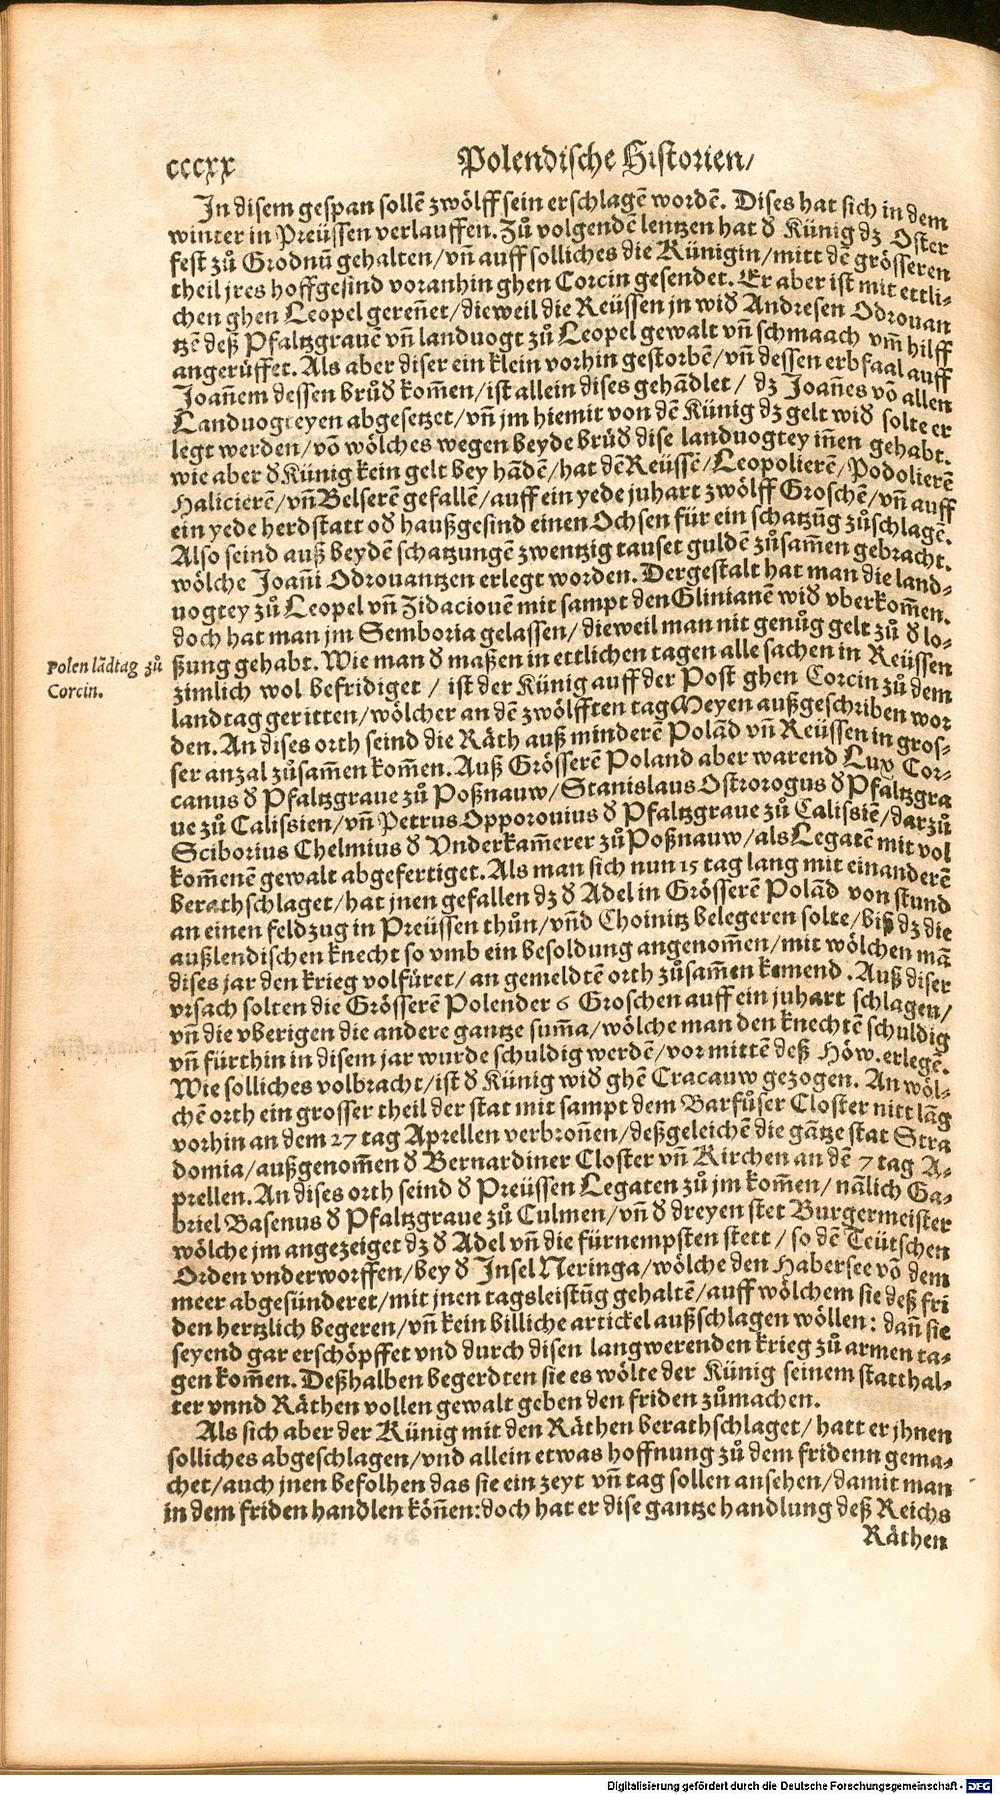 cccxx
Polendische Historien/
In disem gespan sollē zwölff sein erschlagē wordē. Dises hat sich in dem
winter in Preüssen verlauffen. Zů volgendē lentzen hat ď Künig dz Oster
fest zů Grodnū gehalten/vñ auff solliches die Künigin/mitt dē grösseren
theil jres hoffgesind voranhin ghen Corcin gesendet. Er aber ist mit ettli-
chen ghen Leopel gereñet/dieweil die Reüssen jn wiď Andresen Odrouan
tzē deß Pfaltzgrauē vñ landuogt zů Leopel gewalt vñ schmaach vm̄ hilff
angerüffet. Als aber diser ein klein vorhin gestorbē/vñ dessen erbfaal auff
Joañem dessen brůď kom̄en/ist allein dises gehādlet/ dz Joañes vō allen
Landuogteyen abgesetzet/vñ jm hiemit von dē Künig dz gelt wiď solte er
legt werden/vō wölches wegen beyde brůď dise landuogtey iñen gehabt.
wie aber ď Künig kein gelt bey hādē/hat dē Reüssē/Leopolierē/Podolierē
Halicierē/vñ Belserē gefallē/auff ein yede juhart zwölff Groschē/vñ auff
ein yede herdstatt oď haußgesind einen Ochsen für ein schatzūg zůschlagē.
Also seind auß beydē schatzungē zwentzig tauset guldē zůsam̄en gebracht.
wölche Joañi Odrouantzen erlegt worden. Dergestalt hat man die land-
uogtey zů Leopel vñ Zidaciouē mit sampt den Glinianē wiď vberkom̄en.
doch hat man jm Semboria gelassen/dieweil man nit genůg gelt zů ď lo-
Polen lādtag zů
Corcin.
ßung gehabt. Wie man ď maßen in ettlichen tagen alle sachen in Reüssen
zimlich wol befridiget / ist der Künig auff der Post ghen Corcin zů dem
landtag geritten/wölcher an dē zwölfften tag Meyen außgeschriben wor
den. An dises orth seind die Räth auß minderē Polād vñ Reüssen in gros-
ser anzal zůsam̄en kom̄en. Auß Grösserē Poland aber warend Lux Cor-
canus ď Pfaltzgraue zů Poßnauw/Stanislaus Ostrorogus ď Pfaltzgra
ue zů Calissien/vñ Petrus Opporouius ď Pfaltzgraue zů Calissiē/darzů
Sciborius Chelmius ď Vnderkam̄erer zů Poßnauw/als Legatē mit vol
kom̄enē gewalt abgefertiget. Als man sich nun 15 tag lang mit einanderē
berathschlaget/hat jnen gefallen dz ď Adel in Grösserē Polād von stund
an einen feldzug in Preüssen thůn/vñd Choinitz belegeren solte/biß dz die
außlendischen knecht so vmb ein besoldung angenom̄en/mit wölchen mā
dises jar den krieg volfüret/an gemeldtē orth zůsam̄en kemend. Auß diser
vrsach solten die Grösserē Polender 6 Groschen auff ein juhart schlagen/
vñ die vberigen die andere gantze sum̄a/wölche man den knechtē schuldig
vñ fürthin in disem jar wurde schuldig werdē/vor mittē deß Höw. erlegē.
Wie solliches volbracht/ist ď Künig wiď ghē Cracauw gezogen. An wöl-
chē orth ein grosser theil der stat mit sampt dem Barfůser Closter nitt lāg
vorhin an dem 27 tag Aprellen verbroñen/deßgeleichē die gātze stat Stra
domia/außgenom̄en ď Bernardiner Closter vñ Kirchen an dē 7 tag A-
prellen. An dises orth seind ď Preüssen Legaten zů jm kom̄en/ nālich Ga-
briel Basenus ď Pfaltzgraue zů Culmen/vñ ď dreyen stet Burgermeister
wölche jm angezeiget dz ď Adel vñ die fürnempsten stett / so dē Teütschen
Orden vnderworffen/bey ď Insel Neringa/wölche den Habersee vō dem
meer abgesünderet/mit jnen tagsleistūg gehaltē/auff wölchem sie deß fri
den hertzlich begeren/vñ kein billiche artickel außschlagen wöllen: dañ sie
seyend gar erschöpffet vnd durch disen langwerenden krieg zů armen ta-
gen kom̄en. Deßhalben begerdten sie es wölte der Künig seinem statthal-
ter vnnd Räthen vollen gewalt geben den friden zůmachen.
Als sich aber der Künig mit den Räthen berathschlaget/ hatt er jhnen
solliches abgeschlagen/vnd allein etwas hoffnung zů dem fridenn gema-
chet/auch jnen befolhen das sie ein zeyt vñ tag sollen ansehen/damit man
in dem friden handlen köñen: doch hat er dise gantze handlung deß Reichs
Räthen
Digitalisierung gefördert durch die Deutsche Forschungsgemeinschaft - DFG